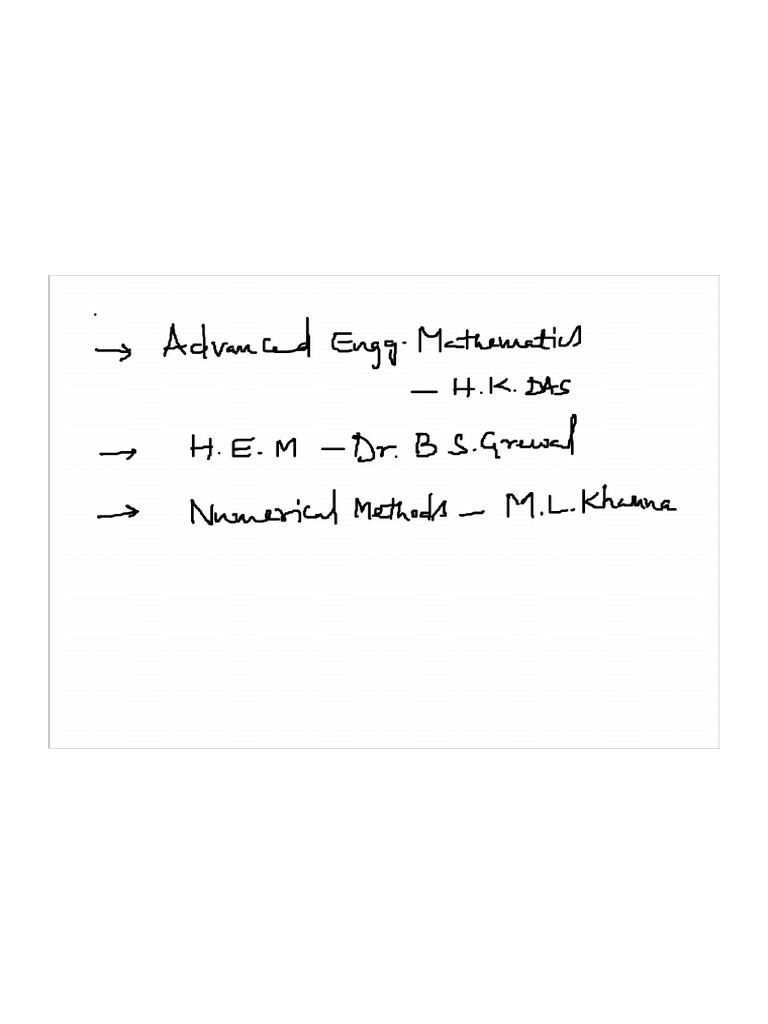 → Advanced Engg. Mathematics
— H.K. DAS
→ H.E.M — Dr. B S. Grewal
→ Numerical Methods — M.L. Khanna